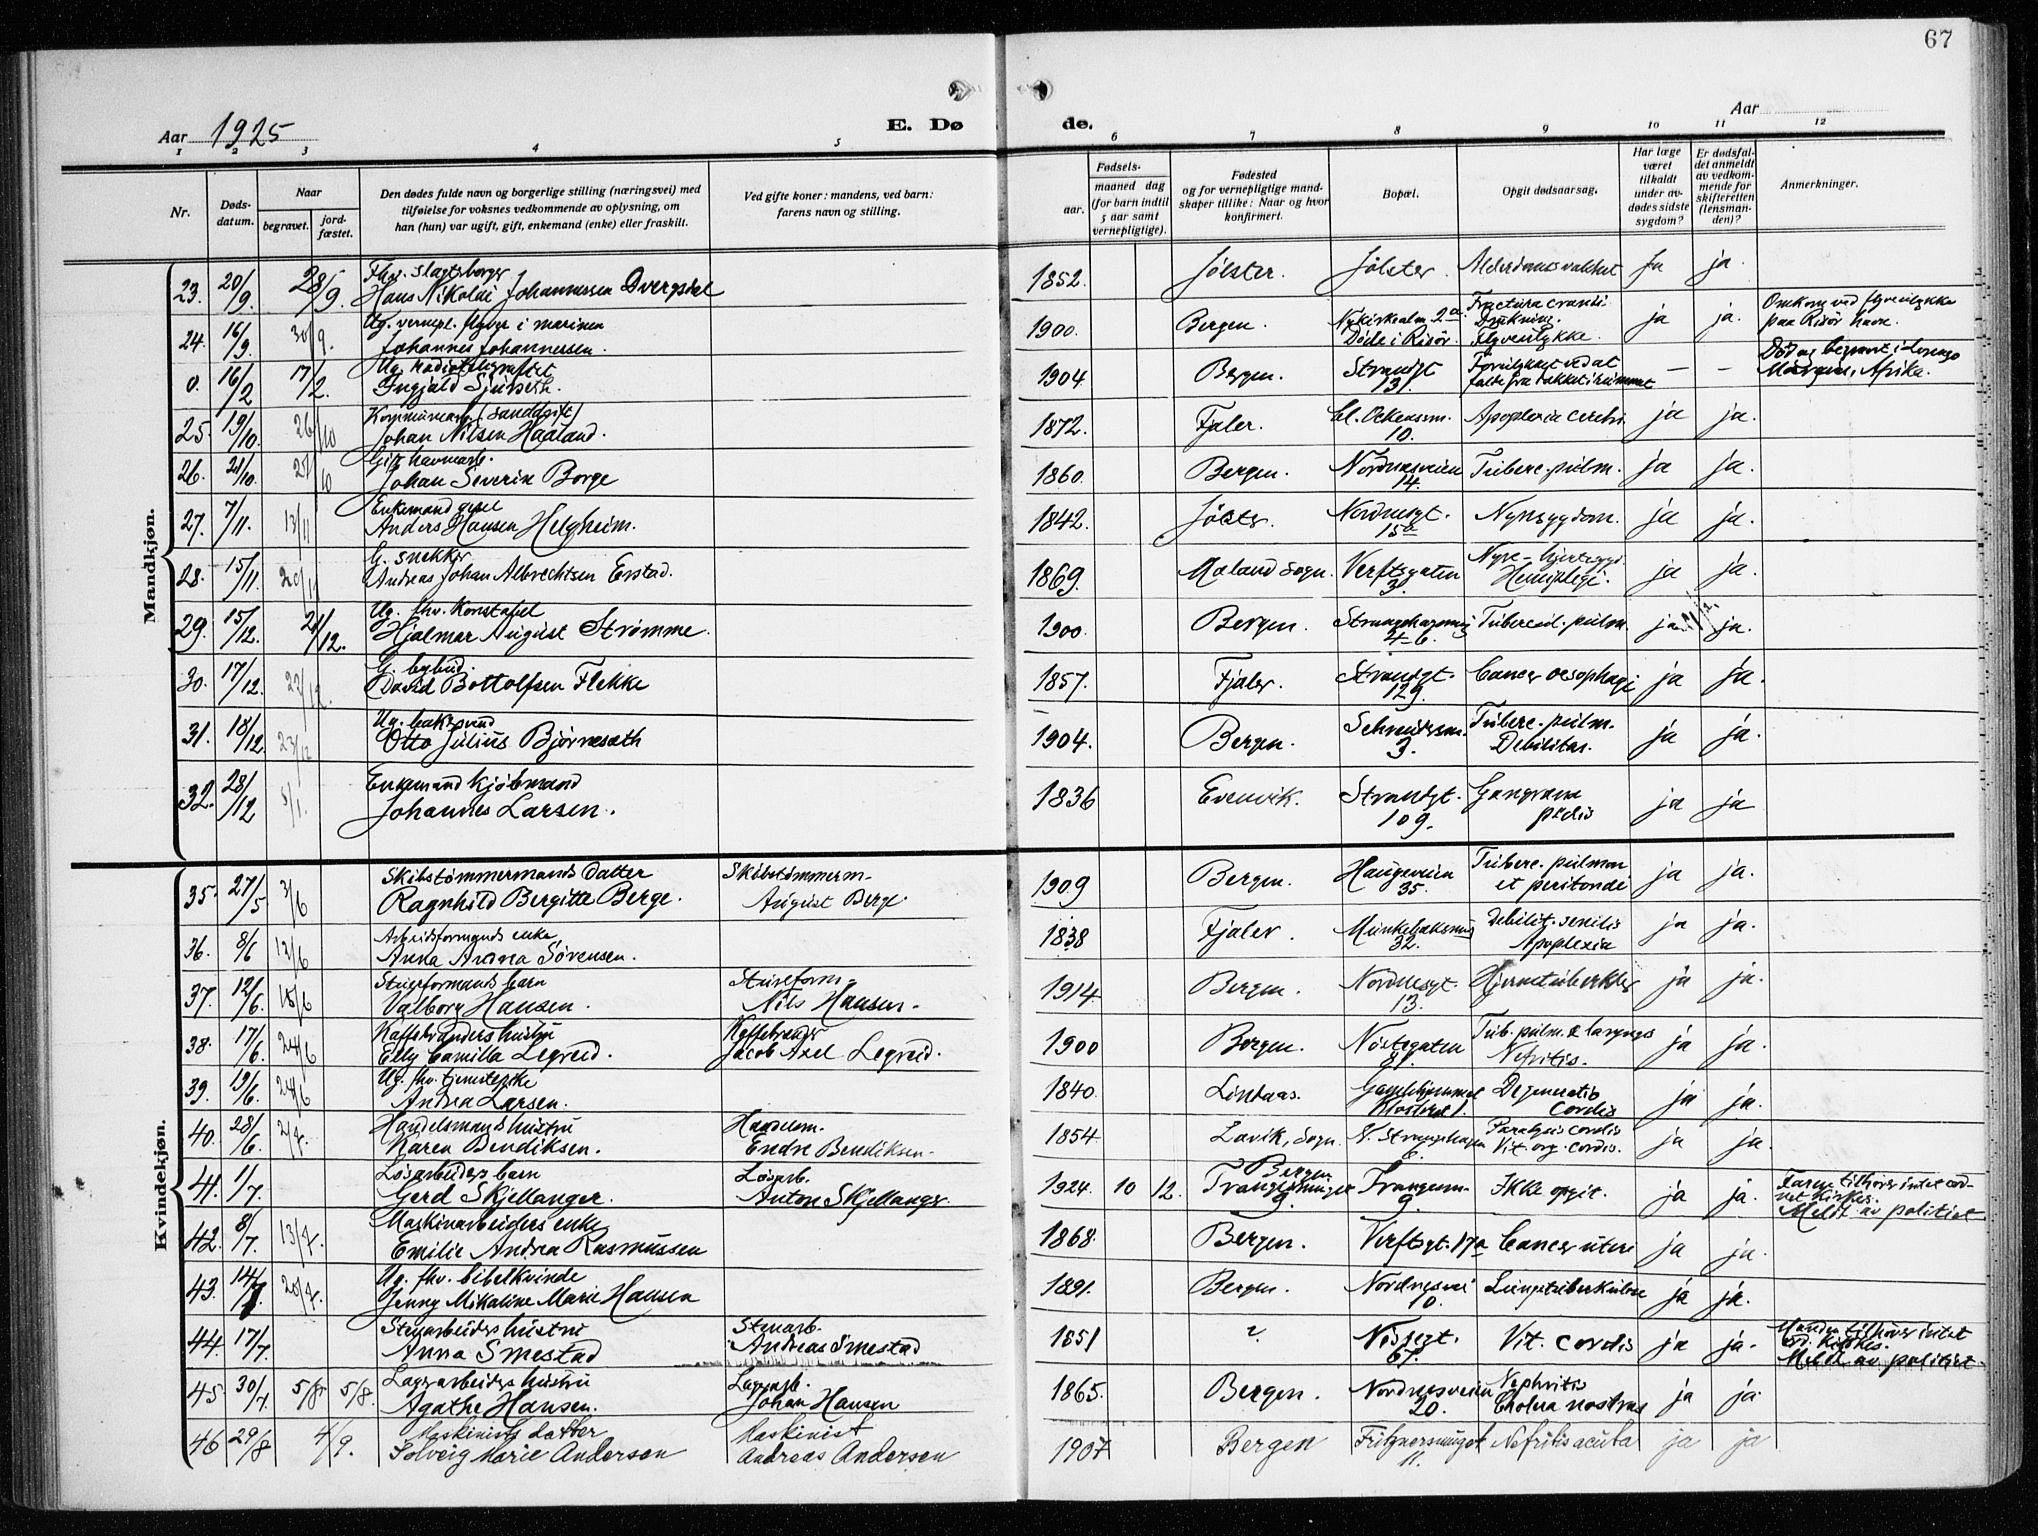 67
Aar 1925
E. Dø de.
Aar
1 2 3 4 5 6 7 8 9 10 11 12
Nr.
Døds-
datum.
Naar
begravet.
jord-
fæstet.
Den dødes fulde navn og borgerlige stilling (næringsvei) med
tilføielse for voksnes vedkommende av oplysning, om
han (hun) var ugift, gift, enkemand (enke) eller fraskilt.
Ved gifte koner: mandens, ved barn:
farens navn og stilling.
Fødsels-
aar.
maaned dag
(for barn indtil
5 aar samt
vernepligtige).
Fødested
og for vernepligtige mand-
skaper tillike: Naar og hvor
konfirmert.
Bopæl.
Opgit dødsaarsag.
Har læge
været
tilkaldt
under av-
dødes sidste
sygdom?
Er dødsfal-
det anmeldt
av vedkom-
mende for
skifteretten
(lensman-
den)?
Anmerkninger.
Mandkjøn.
23. 20/9. 28/9. Fhv. slagtsborger
Hans Nikolai Johannessen Dvergsdal 1852. Jølster. Jølster. Alderdomssvakhet ja ja.
24. 16/9. 30/9. Ug. vernepl. flyver i marinen
Johannes Johannessen. 1900. Bergen. Nykirkealm. 2a. Døde i Risør. Fractura cranii.
Drukning.
Flyveulykke. ja ja. Omkom ved flyveulykke
paa Risør havn.
0. 16/2 17/2. Ug. radiotelegrafist
Ingjald Sjurseth. 1904 Bergen. Strandgt
131. Forulykket ved at
falde fra dækket i rummet – – Død og begravet i
Afrika.
25. 19/10. 26/10 Kommunearb. (sanddrift)
Johan Nilsen Haaland. 1872. Fjaler. Cl. Ockenssm.
10. Apoplexia cerebri. ja ja.
26. 21/10. 27/10 Gift havnearb.
Johan Severin Borge 1860. Bergen. Nordnesveien
14. Tuberc. pulm. ja ja.
27. 7/11. 13/11 Enkemand
Anders Hansen Helgheim. 1842. Jølster. Nordnesgt.
15a Nyresygdom. ja ja.
28. 15/11. 20/11 G. snekker
Andreas Johan Albrechtsen Erstad. 1869. Maland Sogn. Verftsgaten
3. Nyre-hjertesygd.
Hemiplegi. ja ja.
29. 15/12. 21/12. Ug. fhv. Konstabel
Hjalmar August Strømme. 1900. Bergen. Strangehagensmg
4-6. Tubercul. pulm. ja ja.
30. 17/12. 22/12. G. bybud.
David Bottolfsen Flekke 1857. Fjaler. Strandgt.
129. Cancer oesophagi ja ja.
31. 18/12. 23/12 Ug. baksvend
Otto Julius Bjørnesæth 1904. Bergen. Schneidersm.
3. Tuberc. pulm.
Debilitas. ja ja.
32. 28/12 5/1. Enkemand kjøbmand
Johannes Larsen. 1836 Evenvik. Strandgt.
109. Gangræna
pedis ja ja
Kvindekjøn.
35. 27/5 3/6 Skibstømmermands datter
Ragnhild Bergitte Berge. Skibstømmerm-
August Berge. 1909 Bergen. Haugeveien
35. Tuberc. pulmon
et peritonei ja ja.
36. 8/6 12/6 Arbeidsformands enke
Anna Andrea Sørensen. 1838 Fjaler. Munkebeksmug
32. Debilit. senilis
Apoplexia ja ja.
37. 12/6. 18/6 Stuerformands barn
Valborg Hansen. Stuerform-
Nils Hansen- 1914 Bergen. Nordnesgt
13. Hjernetuberkler ja ja.
38. 17/6. 24/6 Kaffebrænders hustru
Elly Camilla Legreid. Kaffebrænder
Jacob Axel Legreid. 1900 Bergen. Nøstegaten
91. Tub. pulm. & laryngis
Nefritis. ja ja.
39. 19/6. 24/6 Ug. fhv. tjenestepike
Andrea Larsen. 1840. Lindaas. Gamlehjemmet
Klosteret 1. Degeneratio
Cordis ja ja.
40. 28/6. 2/7. Handelsmands hustru
Karen Bendiksen. Handelsm.
Endre Bendiksen- 1854. Lavik, Sogn. N. Strangehagen
6. Paralysis cordis
Vit. org. cordis. ja ja.
41. 1/7. Løsarbeiders barn
Gerd Skjellanger. Løsarb.
Anton Skjellanger. 1924. 10 12. Bergen
Trangesmuget
9. Trangesm-
9. Ikke opgit. ja ja. Faren tilhører intet ord-
net kirkes.
Meldt av politiet
42. 8/7. 13/7. Maskinarbeiders enke
Emilie Andrea Rasmussen 1868. Bergen. Verftsgt. 17a Cancer uteri ja ja.
43. 14/7. 20/7. Ug. fhv. bibelkvinde
Jenny Mikaline Marie Hansen 1891. Bergen. Nordnesvei
10. Lungetuberkulose ja ja.
44. 17/7. Stenarbeiders hustru
Anna Smestad Stenarb.
Andreas Smestad 1851 ? Nøstegt.
67. Vit. cordis ja ja. Manden tilhører intet
ord. kirkes.
Meldt av politiet.
45. 30/7. 5/8 5/8. Lagerarbeiders hustru
Agathe Hansen. Lagerarb.
Johan Hansen 1865. Bergen. Nordnesveien
20. Nephritis
Cholera nostras ja ja.
46 29/8 4/9. Maskinists datter
Solveig Marie Andersen Maskinist
Andreas Andersen 1907 Bergen Fritznersmuget
11. Nefritis acuta ja ja